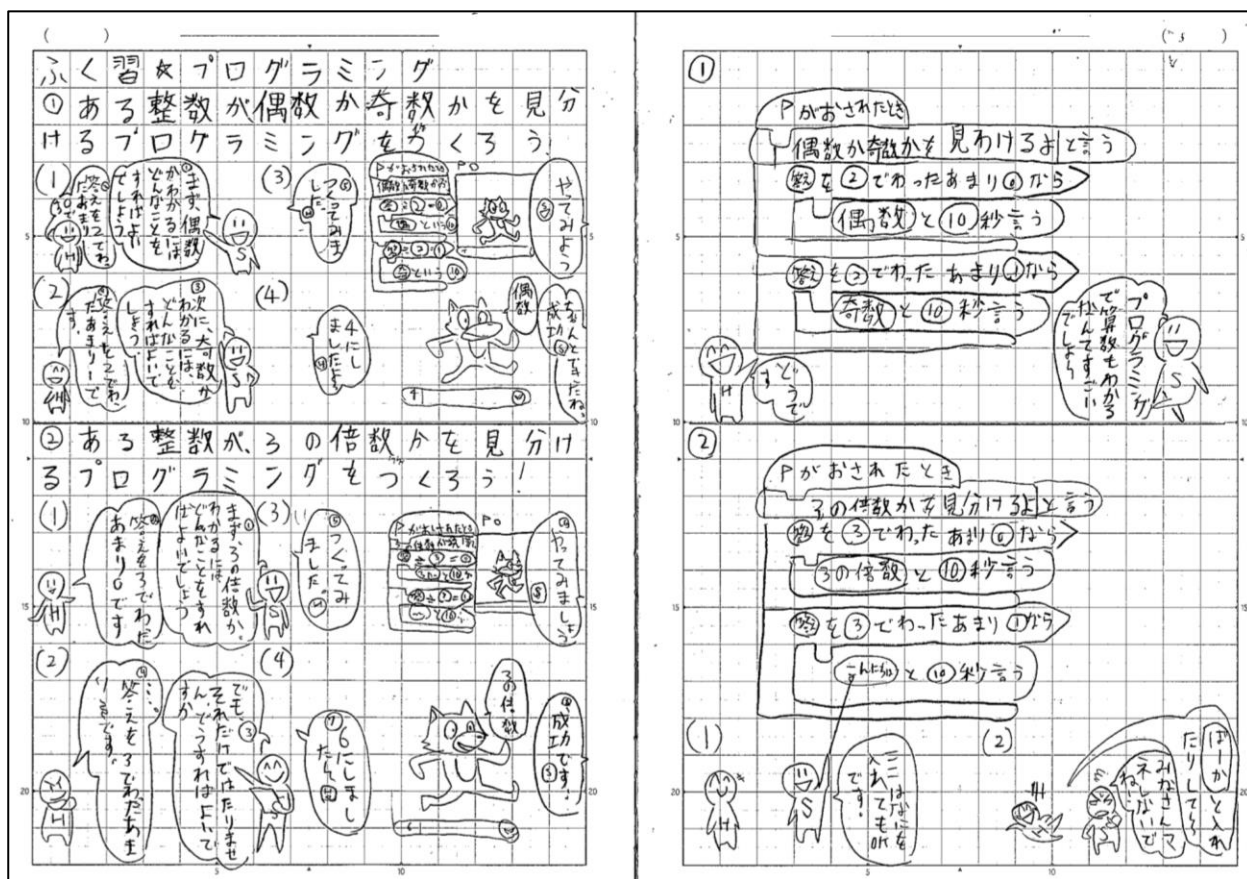 ふく習☆プログラミング
①ある整数が偶数か奇数かを見分
けるプログラミングをつくろう!
(1)
①まず、偶数
かわかるには、
どんなことを
すればよい
でしょう
S
②答えを2でわっ
たあまり
0です
H
(2)
③次に、奇数か
わかるには、
どんなことを
すればよいで
しょう。
S
④答えを2でわっ
たあまり1で
す。
H
(3)
つくってみま
した。
Pがおされたとき
やってみよう
(4)
4にし
ましたら
偶数
ちゃんとできたね。
成功
②ある整数が、3の倍数かを見分け
るプログラミングをつくろう!
(1)
①まず、3の倍数か。
わかるには
どんなことをすれ
ばよいでしょう
S
答えを3でわった
あまり0です
H
(2)
でも③
それだけではたりませ
ん。どうすればよいで
すか
S
④…。
答えを3でわったあま
り1です。
H
(3)
⑤つくってみ
ました。
Pがおされたとき
やってみましょう
(4)
⑦6にしまし
たら
3の倍数
成功です!
①
Pがおされたとき
偶数か奇数かを見わけるよと言う
答えを2でわったあまり0なら
偶数と10秒言う
答えを2でわったあまり1なら
奇数と10秒言う
プログラミング
で算数もわかる
なんてすごい
でしょう
S
どうで
す
H
②
Pがおされたとき
3の倍数かを見分けるよと言う
答えを3でわったあまり0なら
3の倍数と10秒言う
答えを3でわったあまり1なら
こんにちはと10秒言う
(1)
H
S
ここはなにを
入れてもOK
です。
(2)
ばーかと入れ
たりしてら
みなさんマ
ネしないで
ね!